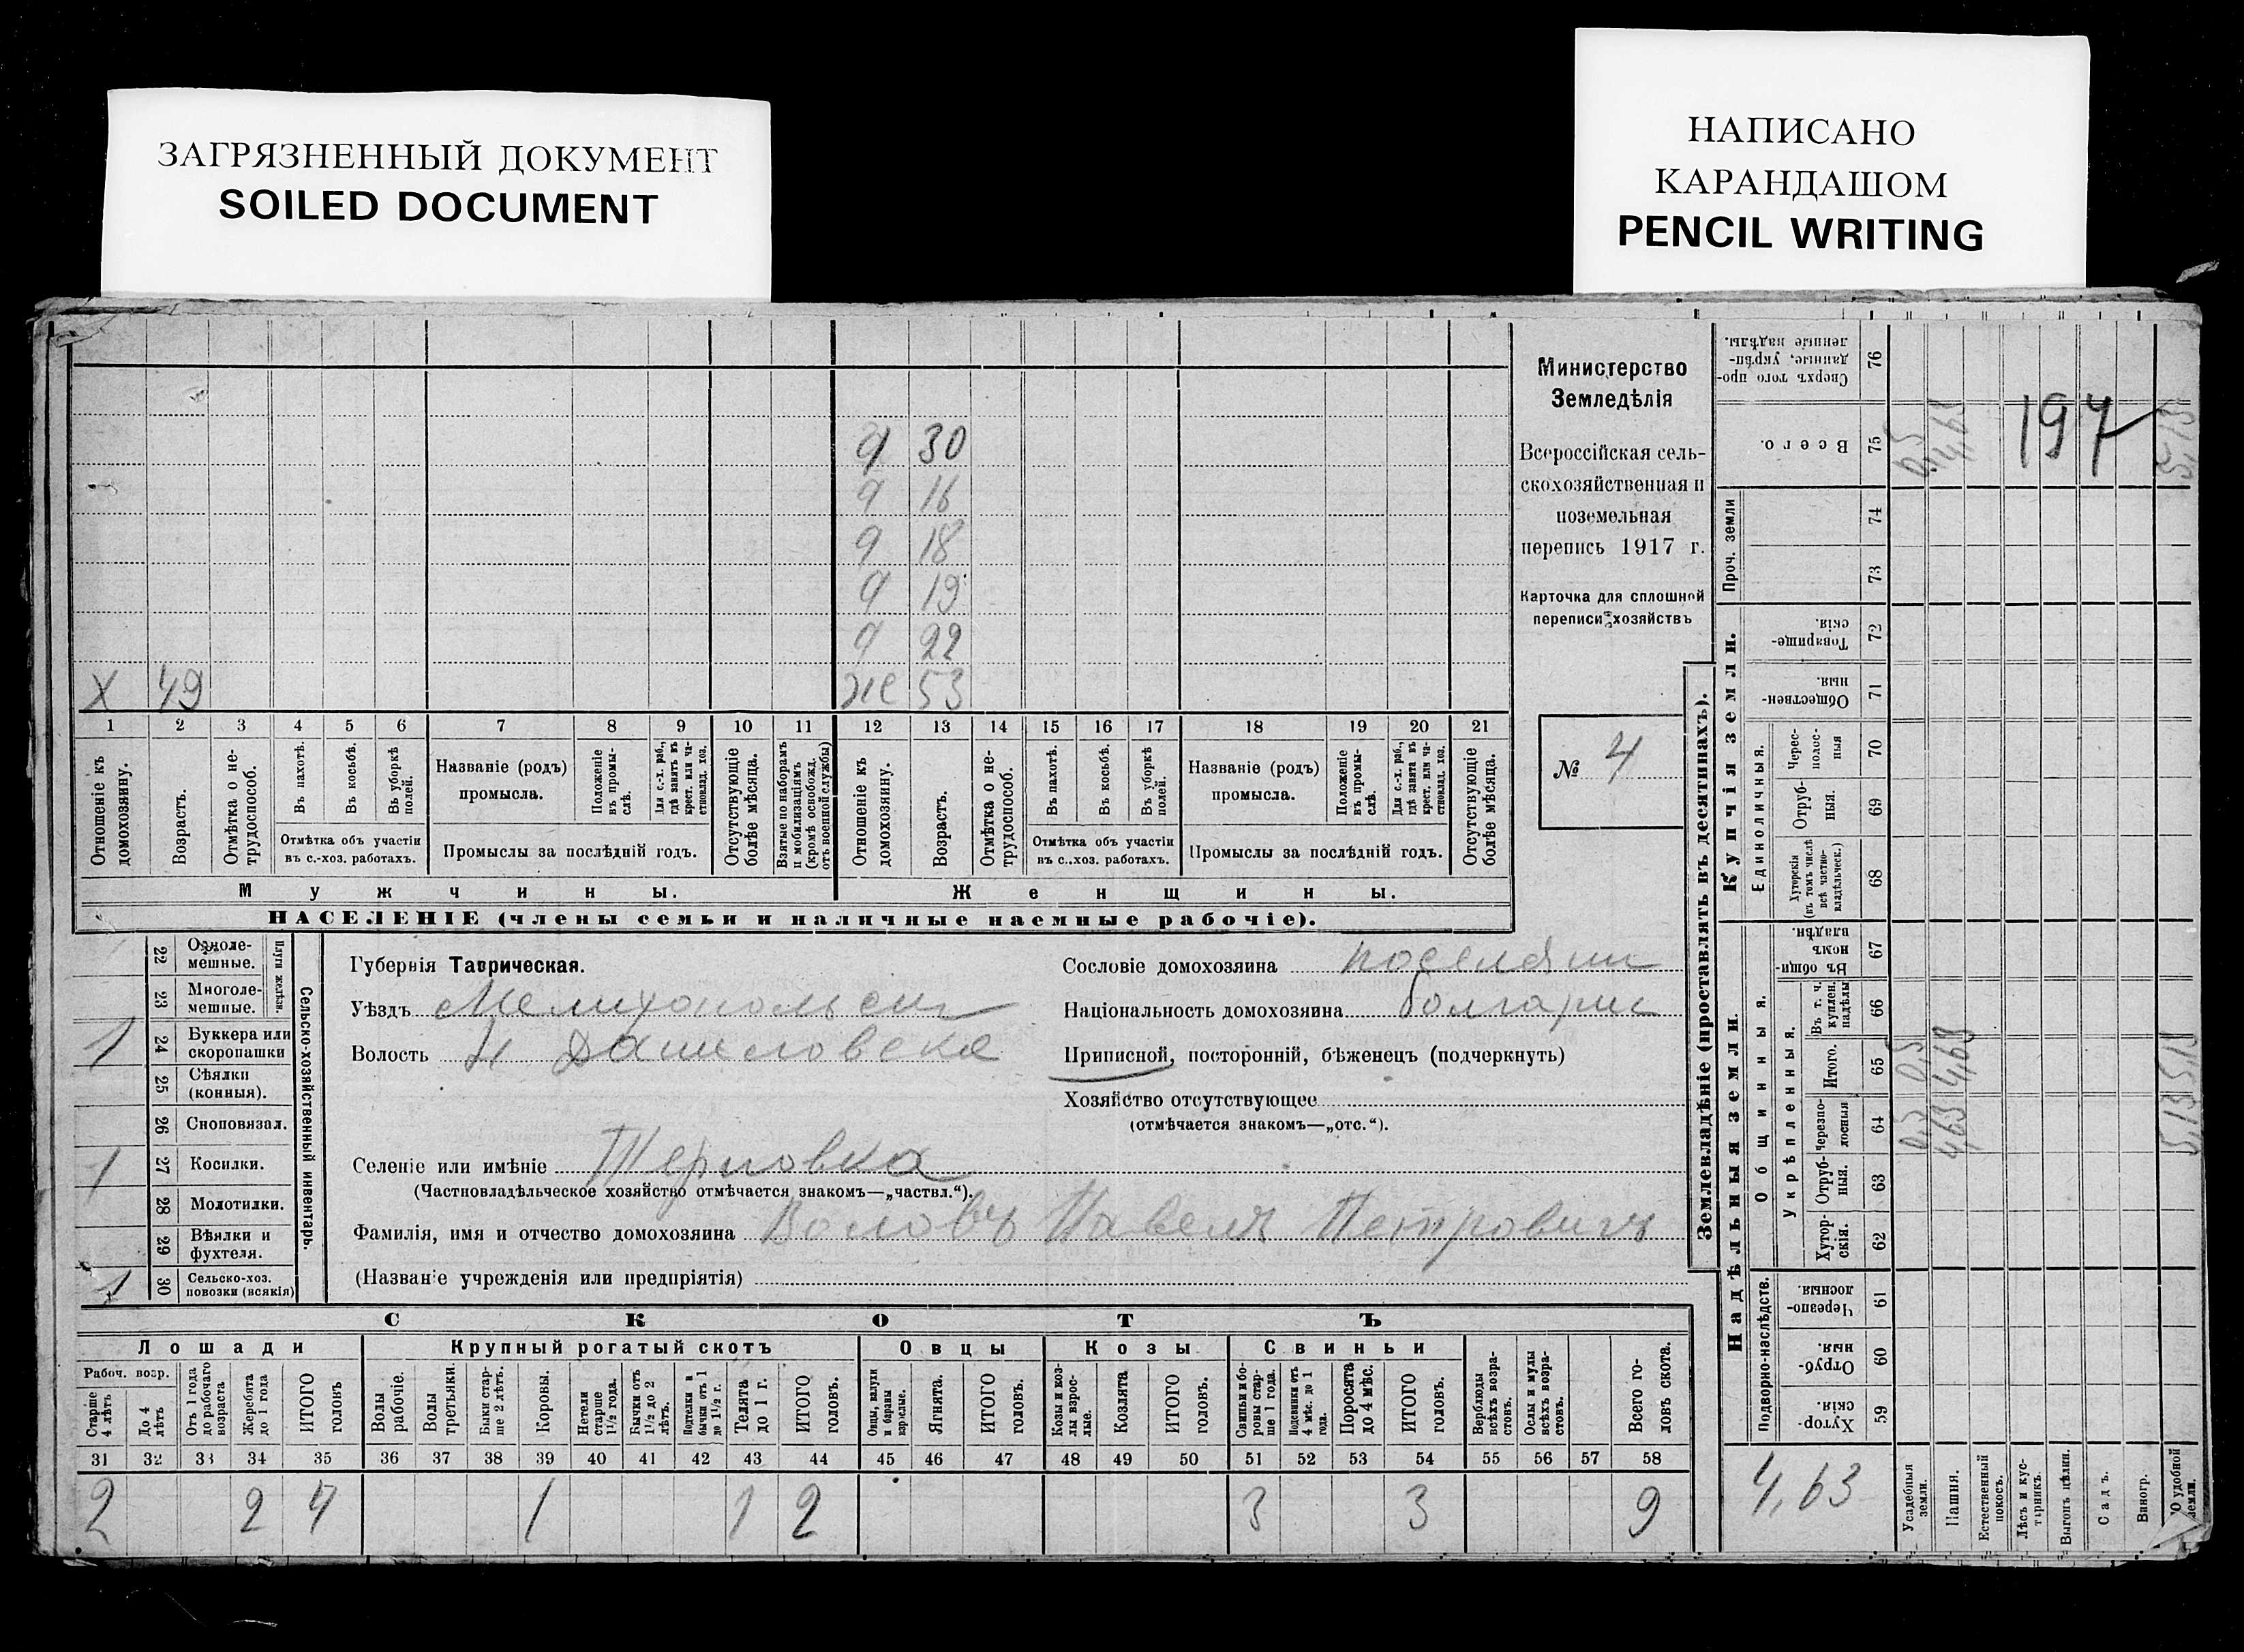 ЗАГРЯЗНЕННЫЙ ДОКУМЕНТ
SOILED DOCUMENT
НАПИСАНО
КАРАНДАШОМ
PENCIL WRITING
Министерство
Земледѣлія
Всероссійская сель-
скохозяйственная и
поземельная
перепись 1917 г.
Карточка для сплошной
переписи хозяйствъ
№ 4
197
9 30
9 16
9 18
9 19
9 22
Х 49 же 53
1 2 3 4 5 6 7 8 9 10 11 12 13 14 15 16 17 18 19 20 21
Отношеніе къ домохозяину.
Возрастъ.
Отмѣтка о не-трудоспособ.
Въ пахотѣ.
Въ косьбѣ.
Въ уборкѣ полей.
Отмѣтка объ участіи
въ с.-хоз. работахъ.
Названіе (родъ)
промысла.
Положеніе въ промы-слѣ.
Для с.-х. раб., гдѣ занятъ въ крест. или ча-стновлад. хоз.
Промыслы за послѣдній годъ.
Отсутствующіе болѣе мѣсяца.
Взятые по наборамъ и мобилизаціямъ (кромѣ освобожд. отъ военной службы)
Отношеніе къ домохозяину.
Возрастъ.
Отмѣтка о не-трудоспособ.
Въ пахотѣ.
Въ косьбѣ.
Въ уборкѣ полей.
Отмѣтка объ участіи
въ с.-хоз. работахъ.
Названіе (родъ)
промысла.
Положеніе въ промы-слѣ.
Для с.-х. раб., гдѣ занята въ крест. или ча-стновлад. хоз.
Промыслы за послѣдній годъ.
Отсутствующіе болѣе мѣсяца.
Мужчины. Женщины.
НАСЕЛЕНІЕ (члены семьи и наличные наемные рабочіе).
Сельско-хозяйственный инвентарь.
Плуги желѣзн.
22 Одноле-мешные.
23 Многоле-мешные.
1 24 Буккера или скоропашки
25 Сѣялки (конныя).
26 Сноповязал.
1 27 Косилки.
28 Молотилки.
29 Вѣялки и фухтеля.
1 30 Сельско-хоз. повозки (всякія)
Губернія Таврическая.
Уѣздъ Мелитопольск
Волость Н Даниловска
Селеніе или имѣніе Терновка
(Частновладѣльческое хозяйство отмѣчается знакомъ—„частвл.“).
Фамилія, имя и отчество домохозяина Воловъ Павелъ Петровичъ
(Названіе учрежденія или предпріятія)
Сословіе домохозяина поселянин
Національность домохозяина болгарин
Приписной, посторонній, бѣженецъ (подчеркнуть)
Хозяйство отсутствующее
(отмѣчается знакомъ—„отс.“).
СКОТЪ
Лошади Крупный рогатый скотъ Овцы Козы Свиньи
Рабоч. возр.
Старше 4 лѣтъ
До 4 лѣтъ
Отъ 1 года до рабочаго возраста
Жеребята до 1 года
ИТОГО головъ
Волы рабочіе.
Волы третьяки
Быки стар-ше 2 лѣтъ.
Коровы.
Нетели старше 1½ года.
Бычки отъ 1½ до 2 лѣтъ.
Подтелки и бычки отъ 1 до 1½ г.
Телята до 1 г.
ИТОГО головъ.
Овцы, валухи и бараны взрослые.
Ягнята.
ИТОГО головъ.
Козы и коз-лы взрос-лые.
Козлята
ИТОГО головъ.
Свиньи и бо-ровы стар-ше 1 года.
Подсвинки отъ 4 мѣс. до 1 года.
Поросята до 4 мѣс.
ИТОГО головъ.
Верблюды всѣхъ возра-стовъ.
Ослы и мулы всѣхъ возра-стовъ.
Всего го-ловъ скота.
31 32 33 34 35 36 37 38 39 40 41 42 43 44 45 46 47 48 49 50 51 52 53 54 55 56 57 58
2 2 4 1 1 2 3 3 9
Землевладѣніе (проставлять въ десятинахъ).
Надѣльныя земли. Купчія земли. Проч. земли
Подворно-наслѣдств.
Общинныя.
Укрѣпленныя.
Единоличныя.
Хутор-скія. 59
Отруб-ныя. 60
Черезпо-лосныя 61
Хутор-скія. 62
Отруб-ныя. 63
Черезпо-лосныя 64
Итого. 65
Въ т. ч. куплен. надѣлы 66
Въ общин-номъ владѣн. 67
Хуторскія (въ томъ числѣ всѣ частно-владѣльческ.) 68
Отруб-ныя. 69
Черес-полос-ныя 70
Обществен-ныя. 71
Товарище-скія. 72
73
74
Всего. 75
Сверхъ того про-данные, укрѣп-ленные надѣлы. 76
4,63
Усадебныя земли. 0,5 0,5 0,5
Пашня. 4,63 4,63 4,63
Естественный покосъ.
Лѣсъ и кус-тарникъ.
Выгонъ цѣлин.
Садъ.
Виногр.
удобной земли. 5,13 5,13 5,13